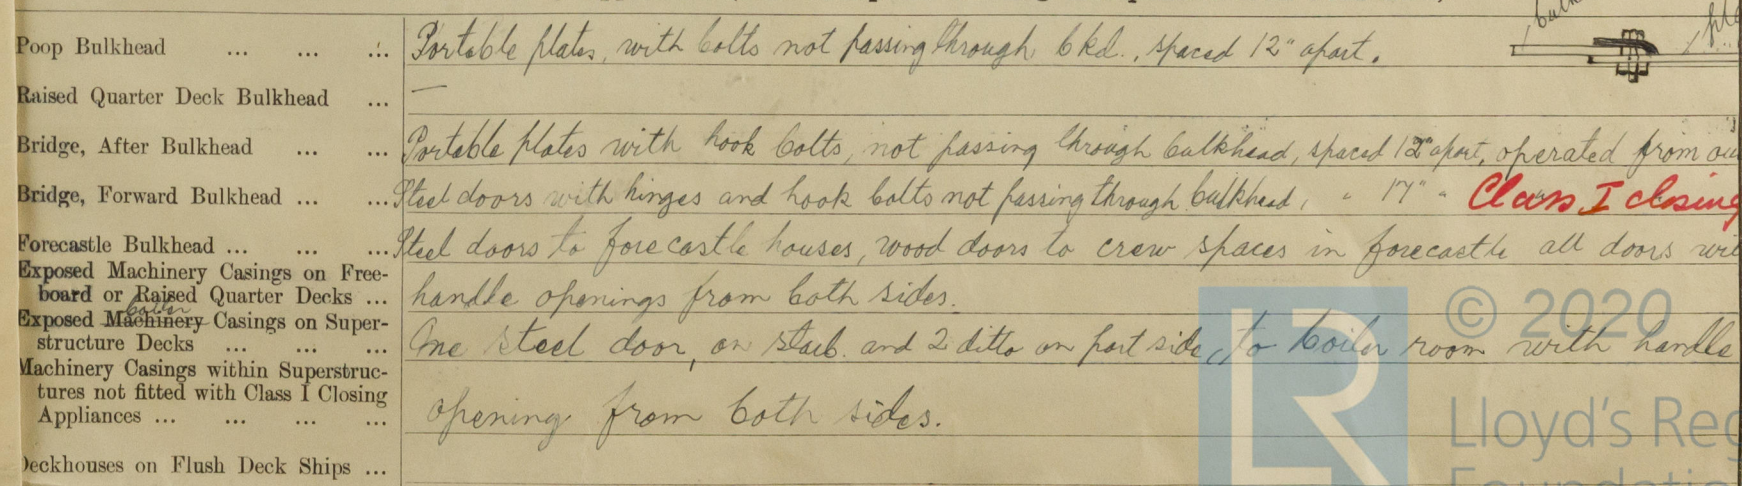 Poop Bulkhead ... ... ... Portable plates, with bolts not passing through bkd., spaced 12" apart.
Raised Quarter Deck Bulkhead ... —
Bridge, After Bulkhead ... ... Portable plates with hook bolts, not passing through bulkhead, spaced 12" apart, operated from
Bridge, Forward Bulkhead ... ... Steel doors with hinges and hook bolts not passing through bulkhead, " 17" " Class I closing
Forecastle Bulkhead ... ... ... Steel doors to forecastle houses, wood doors to crew spaces in forecastle all doors
Exposed Machinery Casings on Free-
board or Raised Quarter Decks ... handle openings from both sides.
boiler
Exposed Machinery Casings on Super-
structure Decks ... ... ... One steel door, on starb. and 2 ditto on port side, to boiler room with handle
Machinery Casings within Superstruc-
tures not fitted with Class I Closing
Appliances ... ... ... ... opening from both sides.
Deckhouses on Flush Deck Ships ...
© 2020
LR
Lloyd's Reg
Foundatio